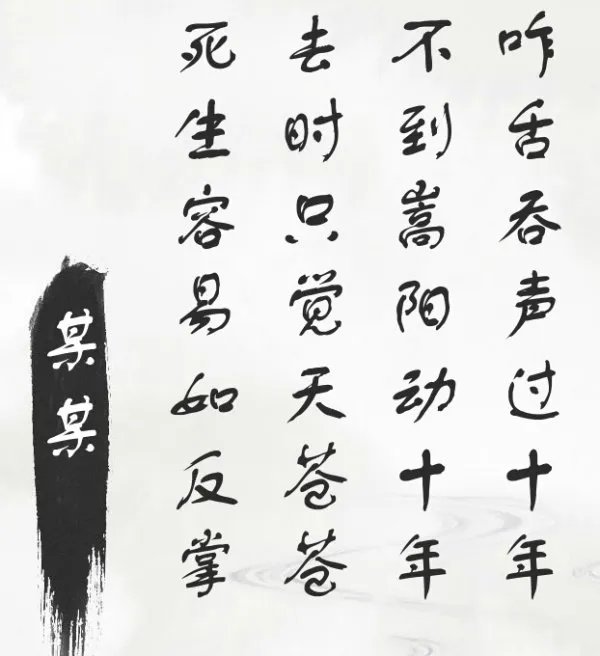 咋舌吞声过十年
不到嵩阳动十年
去时只觉天苍苍
死生容易如反掌
某某